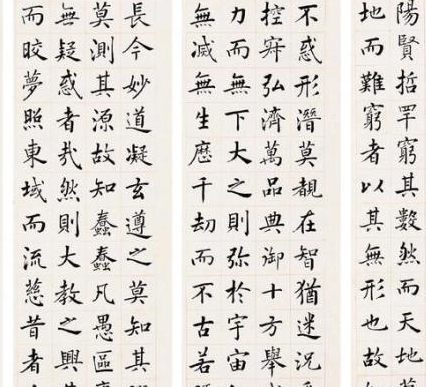 陽賢哲罕窮其數然而天地
地而難窮者以其無形也故
不惑形潛莫覩在智猶迷況
控寂弘濟萬品典御十方舉
力而無下大之則弥於宇宙
無滅無生歷千劫而不古若
長今妙道凝玄遵之莫知其
莫測其源故知蠢蠢凡愚區
無疑惑者哉然則大教之興
而晈夢照東域而流慈昔者